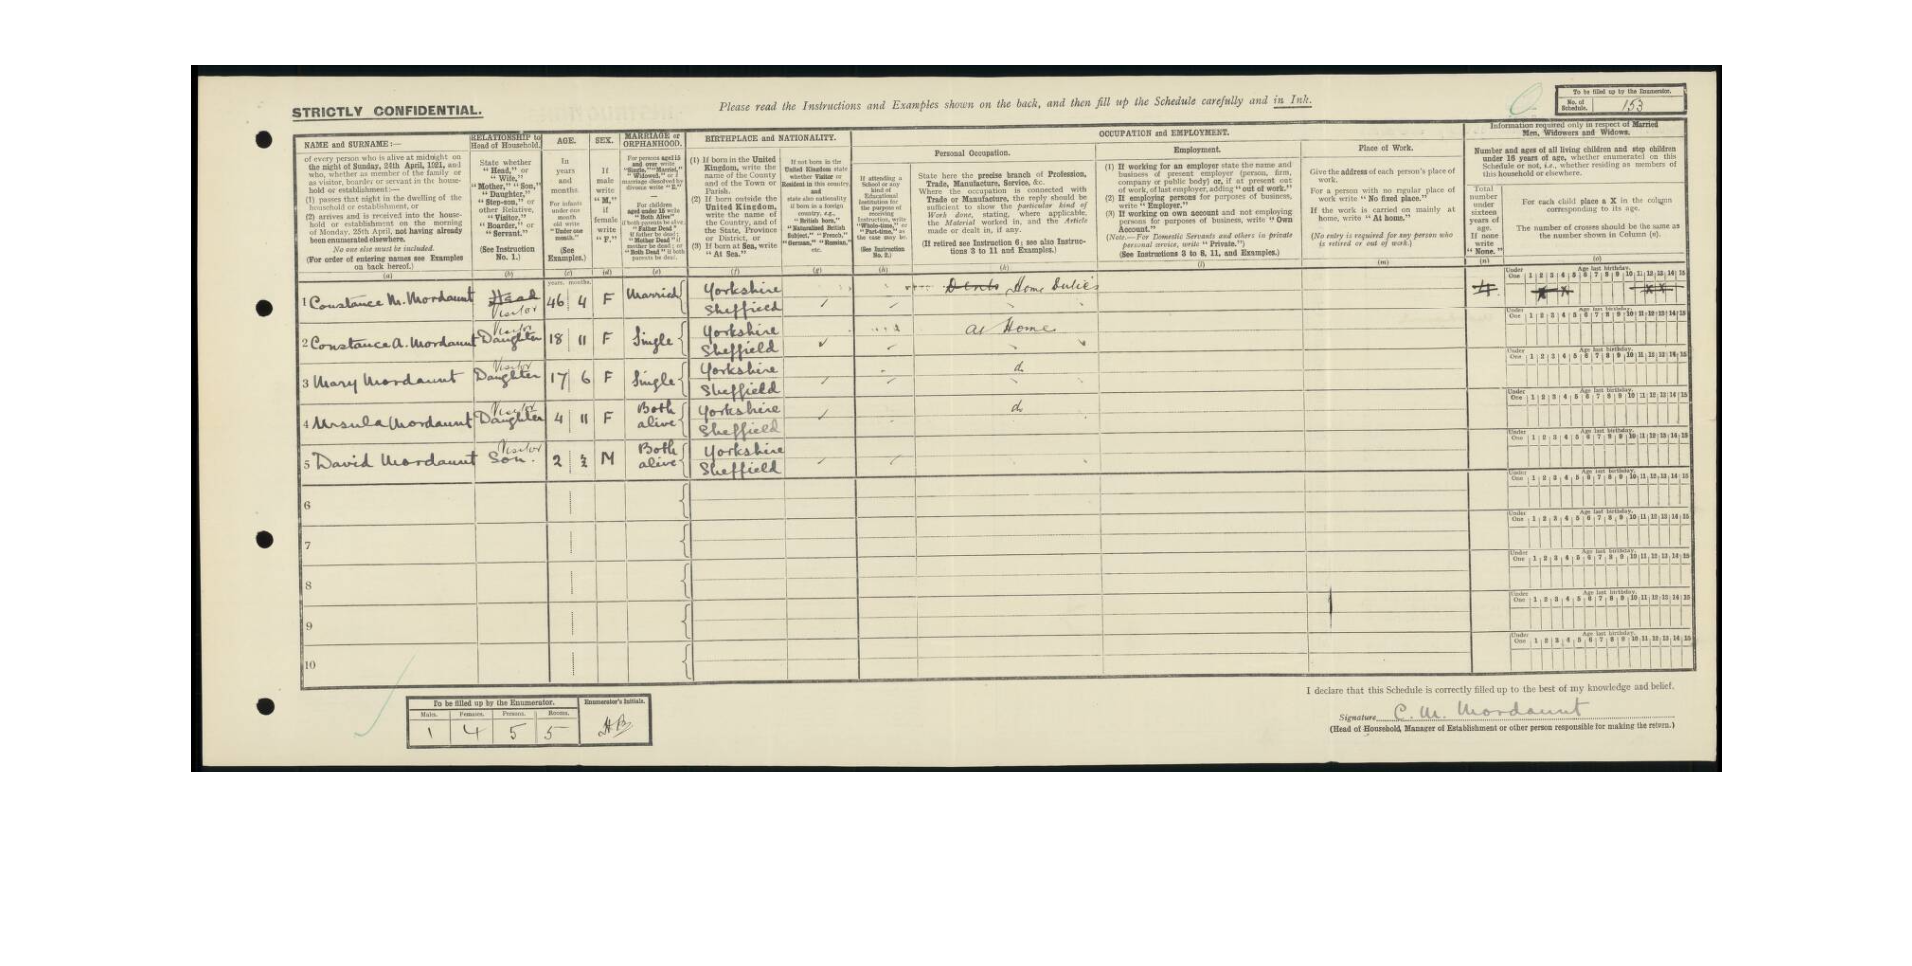 STRICTLY CONFIDENTIAL.
Please read the Instructions and Examples shown on the back, and then fill up the Schedule carefully and in Ink.
To be filled up by the Enumerator.
No. of Schedule. 153
NAME and SURNAME:—
of every person who is alive at midnight on
the night of Sunday, 24th April, 1921, and
who, whether as member of the family or
as visitor, boarder or servant in the house-
hold or establishment:—
(1) passes that night in the dwelling of the
household or establishment, or
(2) arrives and is received into the house-
hold or establishment on the morning
of Monday, 25th April, not having already
been enumerated elsewhere.
No one else must be included.
(For order of entering names see Examples
on back hereof.)
(a)
RELATIONSHIP to
Head of Household.
State whether
"Head," or
"Wife,"
"Mother," "Son,"
"Daughter,"
"Step-son," or
other Relative,
"Visitor,"
"Boarder," or
"Servant."
(See Instruction
No. 1.)
(b)
AGE.
In
years
and
months.
For infants
under one
month
old write
"Under one
month."
(See
Examples.)
(c)
years. months.
SEX.
If
male
write
"M,"
if
female
write
"F."
(d)
MARRIAGE or
ORPHANHOOD.
For persons aged 15
and over write
"Single," "Married,"
"Widowed," or if
marriage dissolved by
divorce write "D."
For children
aged under 15 write
"Both Alive"
if both parents be alive
"Father Dead"
if father be dead;
"Mother Dead" if
mother be dead; or
"Both Dead" if both
parents be dead.
(e)
BIRTHPLACE and NATIONALITY.
(1) If born in the United
Kingdom, write the
name of the County
and of the Town or
Parish.
(2) If born outside the
United Kingdom,
write the name of
the State, Province
or District, or
(3) If born at Sea, write
"At Sea."
(f)
If not born in the
United Kingdom state
whether Visitor or
Resident in this country,
and
state also nationality
if born in a foreign
country, e.g.,
"British born,"
"Naturalised British
Subject," "French,"
"German," "Russian,"
etc.
(g)
OCCUPATION and EMPLOYMENT.
Personal Occupation.
If attending a
School or any
kind of
Educational
Institution for
the purpose of
receiving
Instruction, write
"Whole-time," or
"Part-time," as
the case may be.
(See Instruction
No. 2.)
(h)
State here the precise branch of Profession,
Trade, Manufacture, Service, &c.
Where the occupation is connected with
Trade or Manufacture, the reply should be
sufficient to show the particular kind of
Work done, stating, where applicable,
the Material worked in, and the Article
made or dealt in, if any.
(If retired see Instruction 6; see also Instruc-
tions 3 to 11 and Examples.)
(k)
Employment.
(1) If working for an employer state the name and
business of present employer (person, firm,
company or public body) or, if at present out
of work, of last employer, adding "out of work."
(2) If employing persons for purposes of business,
write "Employer."
(3) If working on own account and not employing
persons for purposes of business, write "Own
Account."
(Note.—For Domestic Servants and others in private
personal service, write "Private.")
(See Instructions 3 to 8, 11, and Examples.)
(l)
Place of Work.
Give the address of each person's place of
work.
For a person with no regular place of
work write "No fixed place."
If the work is carried on mainly at
home, write "At home."
(No entry is required for any person who
is retired or out of work.)
(m)
Information required only in respect of Married
Men, Widowers and Widows.
Number and ages of all living children and step children
under 16 years of age, whether enumerated on this
Schedule or not, i.e., whether residing as members of
this household or elsewhere.
Total
number
under
sixteen
years of
age.
If none
write
"None."
(n)
For each child place a X in the column
corresponding to its age.
The number of crosses should be the same as
the number shown in Column (n).
(o)
Under One Age last birthday. 1 2 3 4 5 6 7 8 9 10 11 12 13 14 15
1 Constance M. Mordaunt Head Visitor 46 4 F Married Yorkshire Sheffield Home Duties 4 X X X X
Under One Age last birthday. 1 2 3 4 5 6 7 8 9 10 11 12 13 14 15
2 Constance A. Mordaunt Visitor Daughter 18 11 F Single Yorkshire Sheffield At Home
Under One Age last birthday. 1 2 3 4 5 6 7 8 9 10 11 12 13 14 15
3 Mary Mordaunt Visitor Daughter 17 6 F Single Yorkshire Sheffield do
Under One Age last birthday. 1 2 3 4 5 6 7 8 9 10 11 12 13 14 15
4 Ursula Mordaunt Visitor Daughter 4 11 F Both alive Yorkshire Sheffield do
Under One Age last birthday. 1 2 3 4 5 6 7 8 9 10 11 12 13 14 15
5 David Mordaunt Visitor Son. 2 ½ M Both alive Yorkshire Sheffield
Under One Age last birthday. 1 2 3 4 5 6 7 8 9 10 11 12 13 14 15
6
Under One Age last birthday. 1 2 3 4 5 6 7 8 9 10 11 12 13 14 15
7
Under One Age last birthday. 1 2 3 4 5 6 7 8 9 10 11 12 13 14 15
8
Under One Age last birthday. 1 2 3 4 5 6 7 8 9 10 11 12 13 14 15
9
Under One Age last birthday. 1 2 3 4 5 6 7 8 9 10 11 12 13 14 15
10
To be filled up by the Enumerator.
Males. Females. Persons. Rooms.
1 4 5 5
Enumerator's Initials.
HB
I declare that this Schedule is correctly filled up to the best of my knowledge and belief.
Signature C. M. Mordaunt
(Head of Household, Manager of Establishment or other person responsible for making the return.)